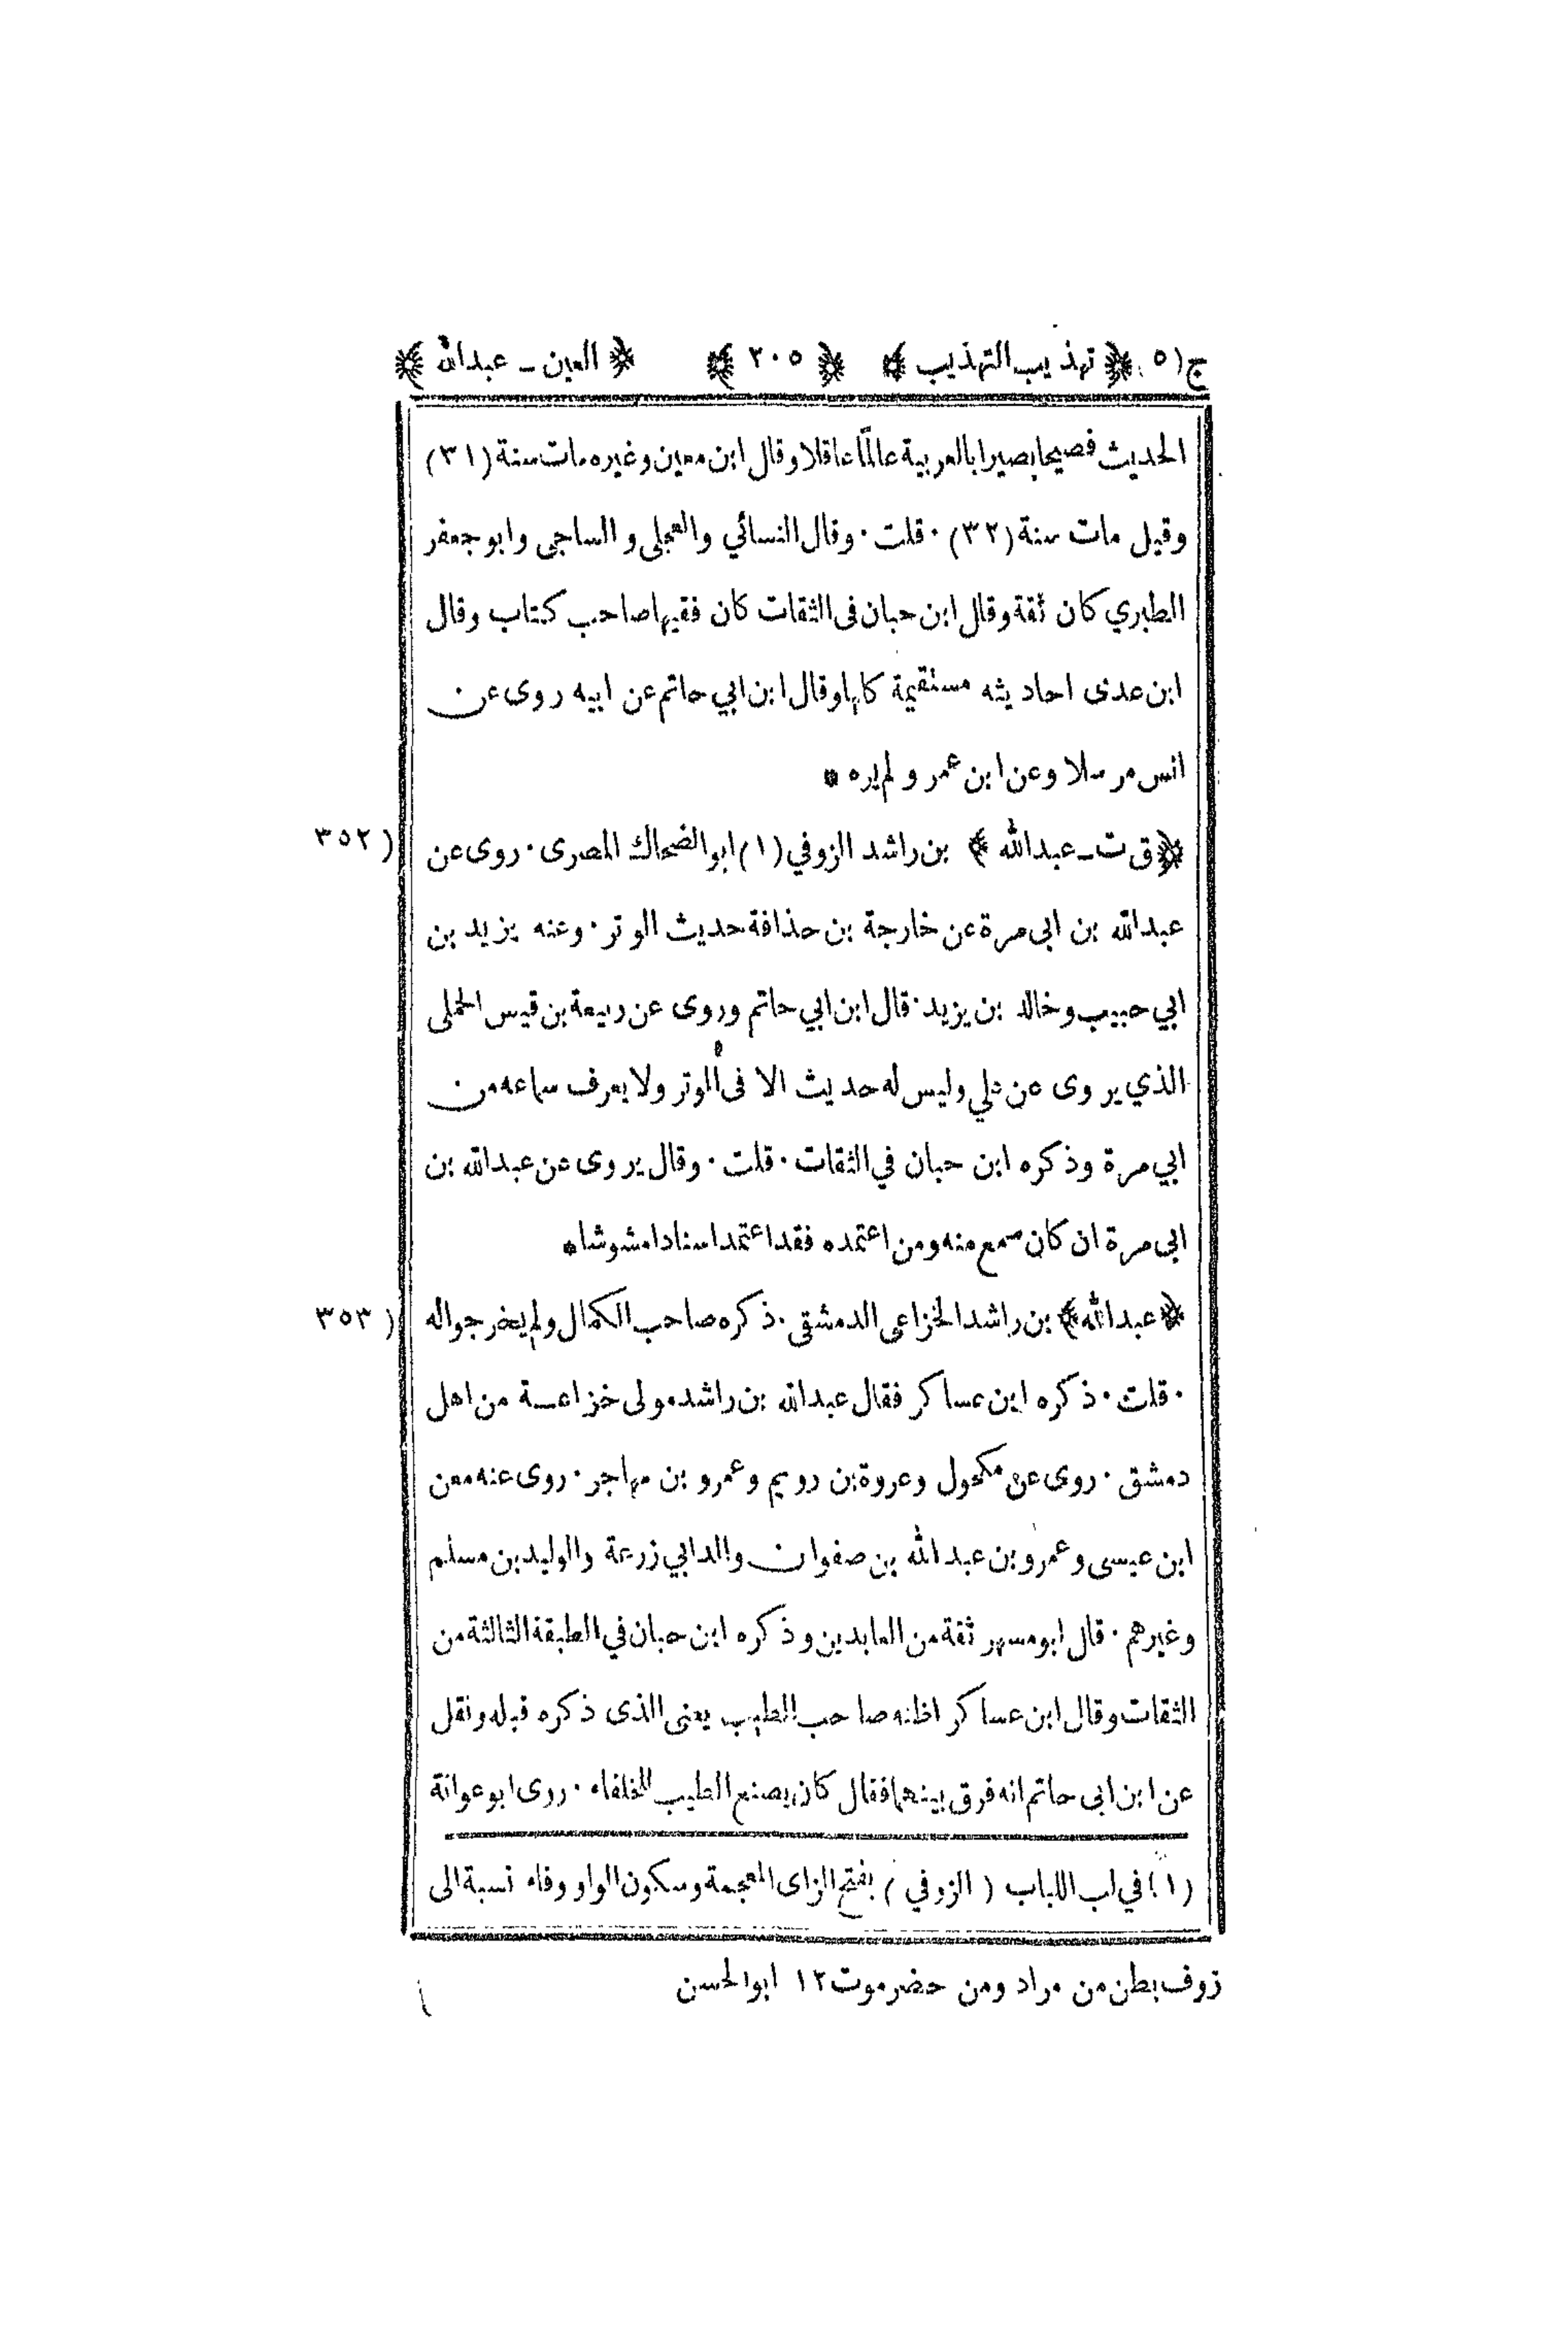 ج(٥) ﴿تهذيب التهذيب﴾ ﴿٢٠٥﴾ ﴿العين - عبدالله﴾
الحديث فصيحا بصيرا بالعربية عالماً عاقلا وقال ابن معين وغيره مات سنة (٣١)
وقيل مات سنة (٣٢) · قلت · وقال النسائي والعجلى والساجى وابو جعفر
الطبري كان ثقة وقال ابن حبان فى الثقات كان فقيها صاحب كتاب وقال
ابن عدى احاديثه مستقيمة كلها وقال ابن ابي حاتم عن ابيه روى عن
انس مرسلا وعن ابن عمر ولم يره *
(٣٥٢ ﴿ق ت - عبدالله﴾ بن راشد الزوفي (١) ابوالضحاك المصرى · روى عن
عبدالله بن ابى مرة عن خارجة بن حذافة حديث الوتر · وعنه يزيد بن
ابي حبيب وخالد بن يزيد · قال ابن ابي حاتم وروى عن ربيعة بن قيس الجملى
الذي يروى عن علي وليس له حديث الا فى الوتر ولا يعرف سماعه من
ابي مرة وذكره ابن حبان في الثقات · قلت · وقال يروى عن عبدالله بن
ابى مرة ان كان سمع منه ومن اعتمده فقد اعتمد اسنادا مشوشا*
(٣٥٣ ﴿عبدالله﴾ بن راشد الخزاعى الدمشقى · ذكره صاحب الكمال ولم يخرجوا له
· قلت · ذكره ابن عساكر فقال عبدالله بن راشد مولى خزاعة من اهل
دمشق · روى عن مكحول وعروة بن رويم وعمرو بن مهاجر · روى عنه معن
ابن عيسى وعمرو بن عبدالله بن صفوان والد ابي زرعة والوليد بن مسلم
وغيرهم · قال ابومسهر ثقة من العابدين وذكره ابن حبان في الطبقة الثالثة من
الثقات وقال ابن عساكر اظنه صاحب الطيب يعنى الذى ذكره قبله ونقل
عن ابن ابى حاتم انه فرق بينهما فقال كان يصنع الطيب للخلفاء · روى ابوعوانة
(١) في لب اللباب (الزوفي) بفتح الزاى المعجمة وسكون الواو وفاء نسبة الى
زوف بطن من مراد ومن حضرموت ١٢ ابوالحسن